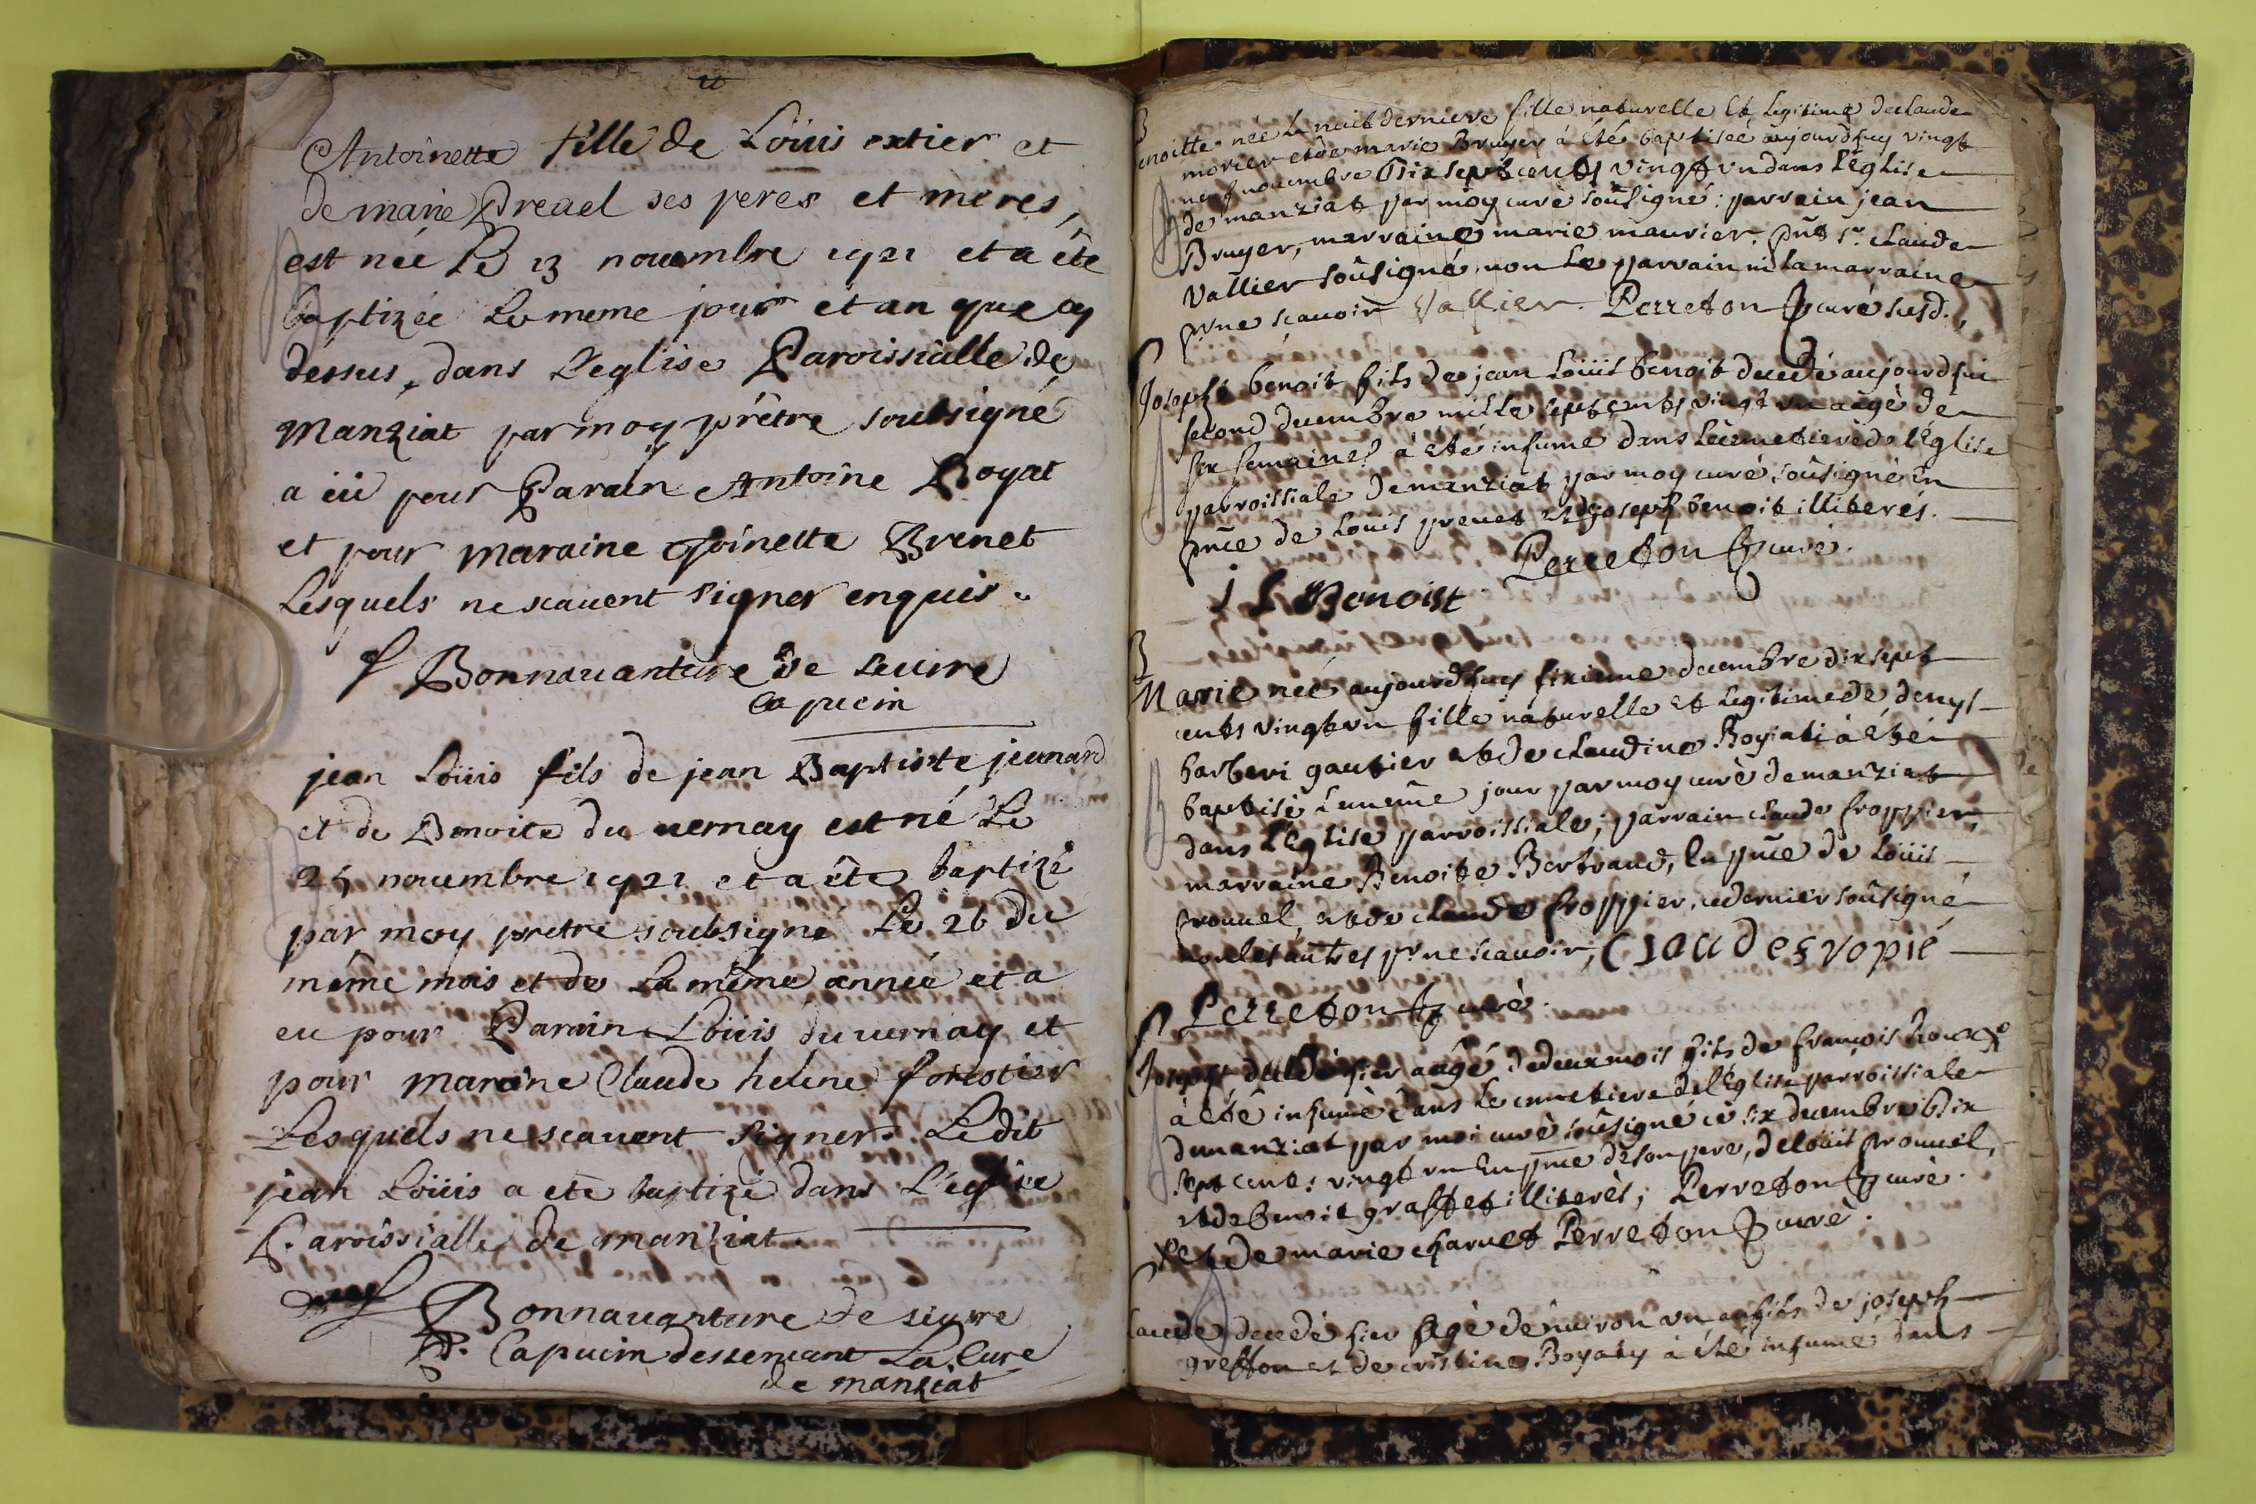 Antoinette fille de Loüis extier et
de marie Preuel ses peres et meres,
est neé Le 13 nouembre 1721 et a éte
baptizée Le meme jour et an que cy
dessus, dans L'eglise Paroissialle de
Manziat par moy prêtre soubsigné
a eü pour Parain Antoine Boyat
et pour maraine Toinette Brenet
Lesquels ne scauent signer enquis.
f Bonnauanture de Seurre
Capucin
jean Loüis fils de jean Baptiste jeunard
et de Benoite du uernay est né Le
25 nouembre 1721 et a éte baptizé
par moy prétre soubsigné Le 26 du
même mois et de La même année et a
eu pour Parain Loüis du uernay et
pour maraine Claude helene forestier
Lesquels ne scauent signer. Ledit
jean Loüis a eté baptizé dans L'eglise
Paroissialle de manziat.
f Bonnauanture de seurre
P. Capucin desseruant La Cure
de manziat
B
enoitte née La nuit derniere fille naturelle et Legitime de claude
morier et de marie Bruyer à étés baptisée aujourdhuy vingt
neuf nouembre dix sept cents vingt un dans L'Eglise
de manziat par moy curé soûsigné; parrain jean
Bruyer, marraine marie maurier. pnt sr. claude
Vallier soûsigné, non Le parrain ni La marraine
pr ne scauoir Vallier. Perreton curé susd.
Joseph benoit fils de jean Loüis benoit decedé aujourdhui
second decembre mille sept cents vingt un aagé de
six semaines à eté inhumé dans Le cimetiere de l'Eglise
parroissiale de manziat par moy curé soûsigné en
pnce de Louis preuet et Joseph benoit illiterés.
Perreton curé.
j L Benoist
B
Marie neé aujourdhuy sixieme decembre dix sept
cents vingt un fille naturelle et Legitime de denys
barberi gautier et de claudine Boyati à eté
baptisé Le mème jour par moy curé de manziat
dans L'Eglise parroissiale; parrain claude froppier,
marraine Benoite Bertrand, En pnce de Loüis
prouuel, et de claude froppier, ce dernier soûsigné
non les autres pr ne scauoir, Claudefropié
Perreton curé.
Joseph aagé de deux mois fils de françois
à eté inhumé dans Le cimetiere de l'Eglise parroissiale
de manziat par moi curé soûsigné ce six decembre dix
sept cents vingt un En pnce de son pere, de loüis prouuel,
et de benoit graffet illiterés; Perreton curé.
et de marie charuet Perreton curé.
Claude decedé hier agé d'enuiron un an fils de joseph
greffon et de cristine Boyaty à eté inhumé dans